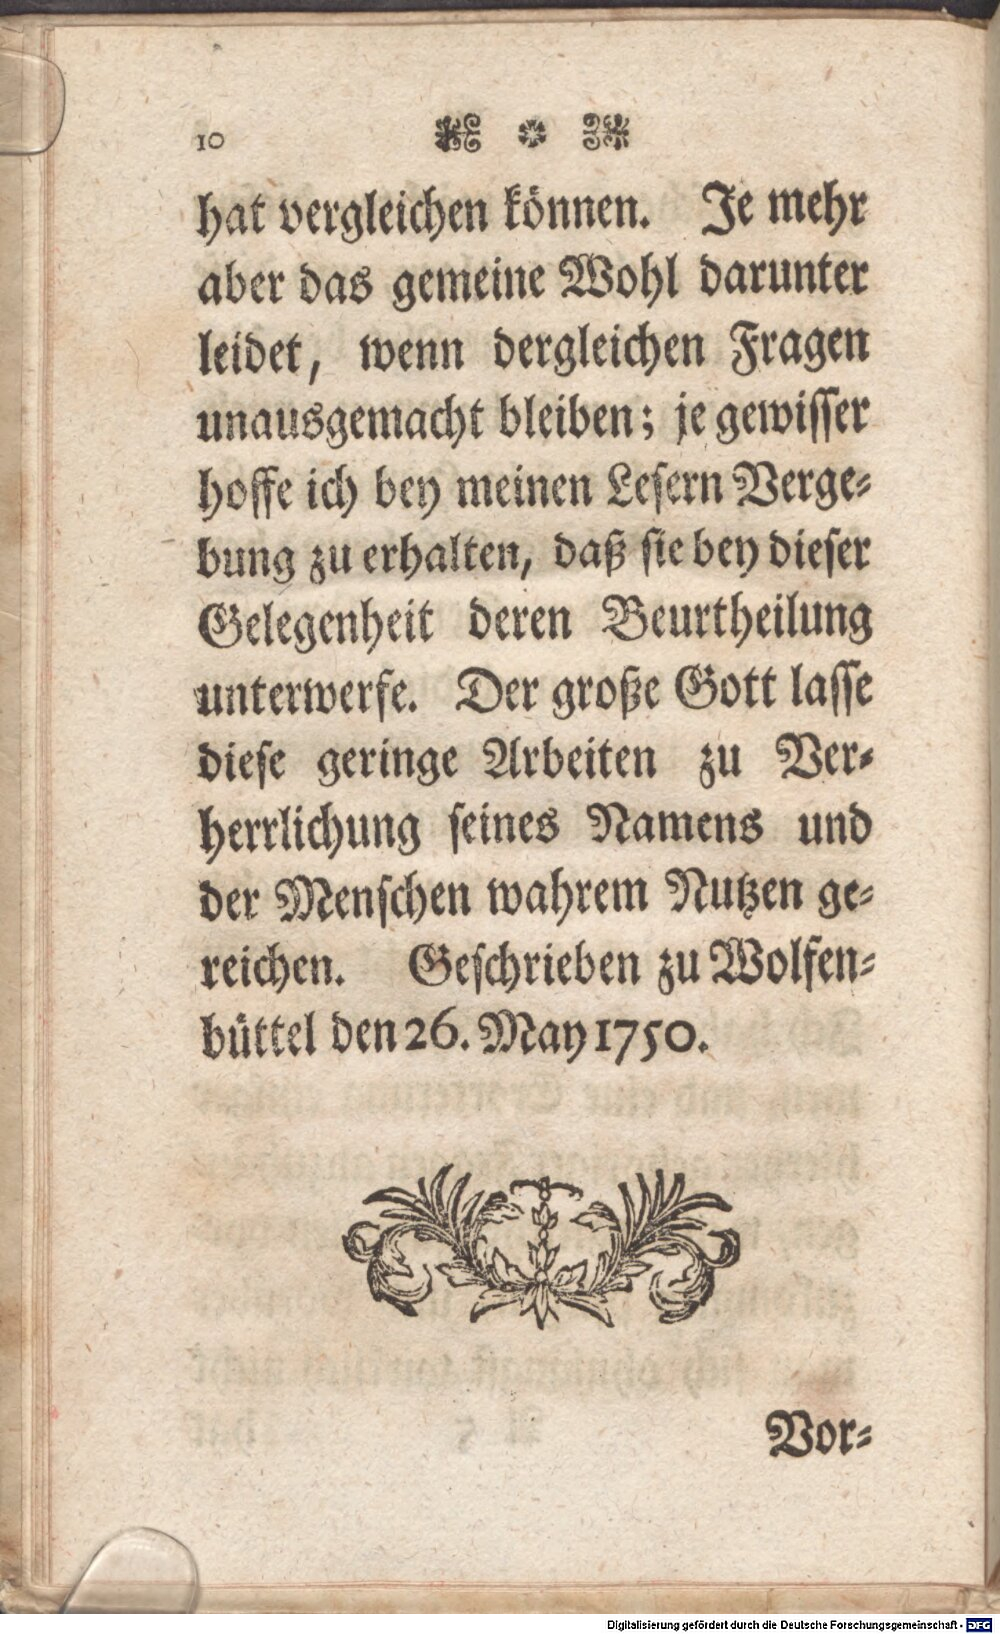 10
hat vergleichen können. Je mehr
aber das gemeine Wohl darunter
leidet, wenn dergleichen Fragen
unausgemacht bleiben; je gewisser
hoffe ich bey meinen Lesern Verge-
bung zu erhalten, daß sie bey dieser
Gelegenheit deren Beurtheilung
unterwerfe. Der große Gott lasse
diese geringe Arbeiten zu Ver-
herrlichung seines Namens und
der Menschen wahrem Nutzen ge-
reichen. Geschrieben zu Wolfen-
büttel den 26. May 1750.
Vor-
Digitalisierung gefördert durch die Deutsche Forschungsgemeinschaft - DFG